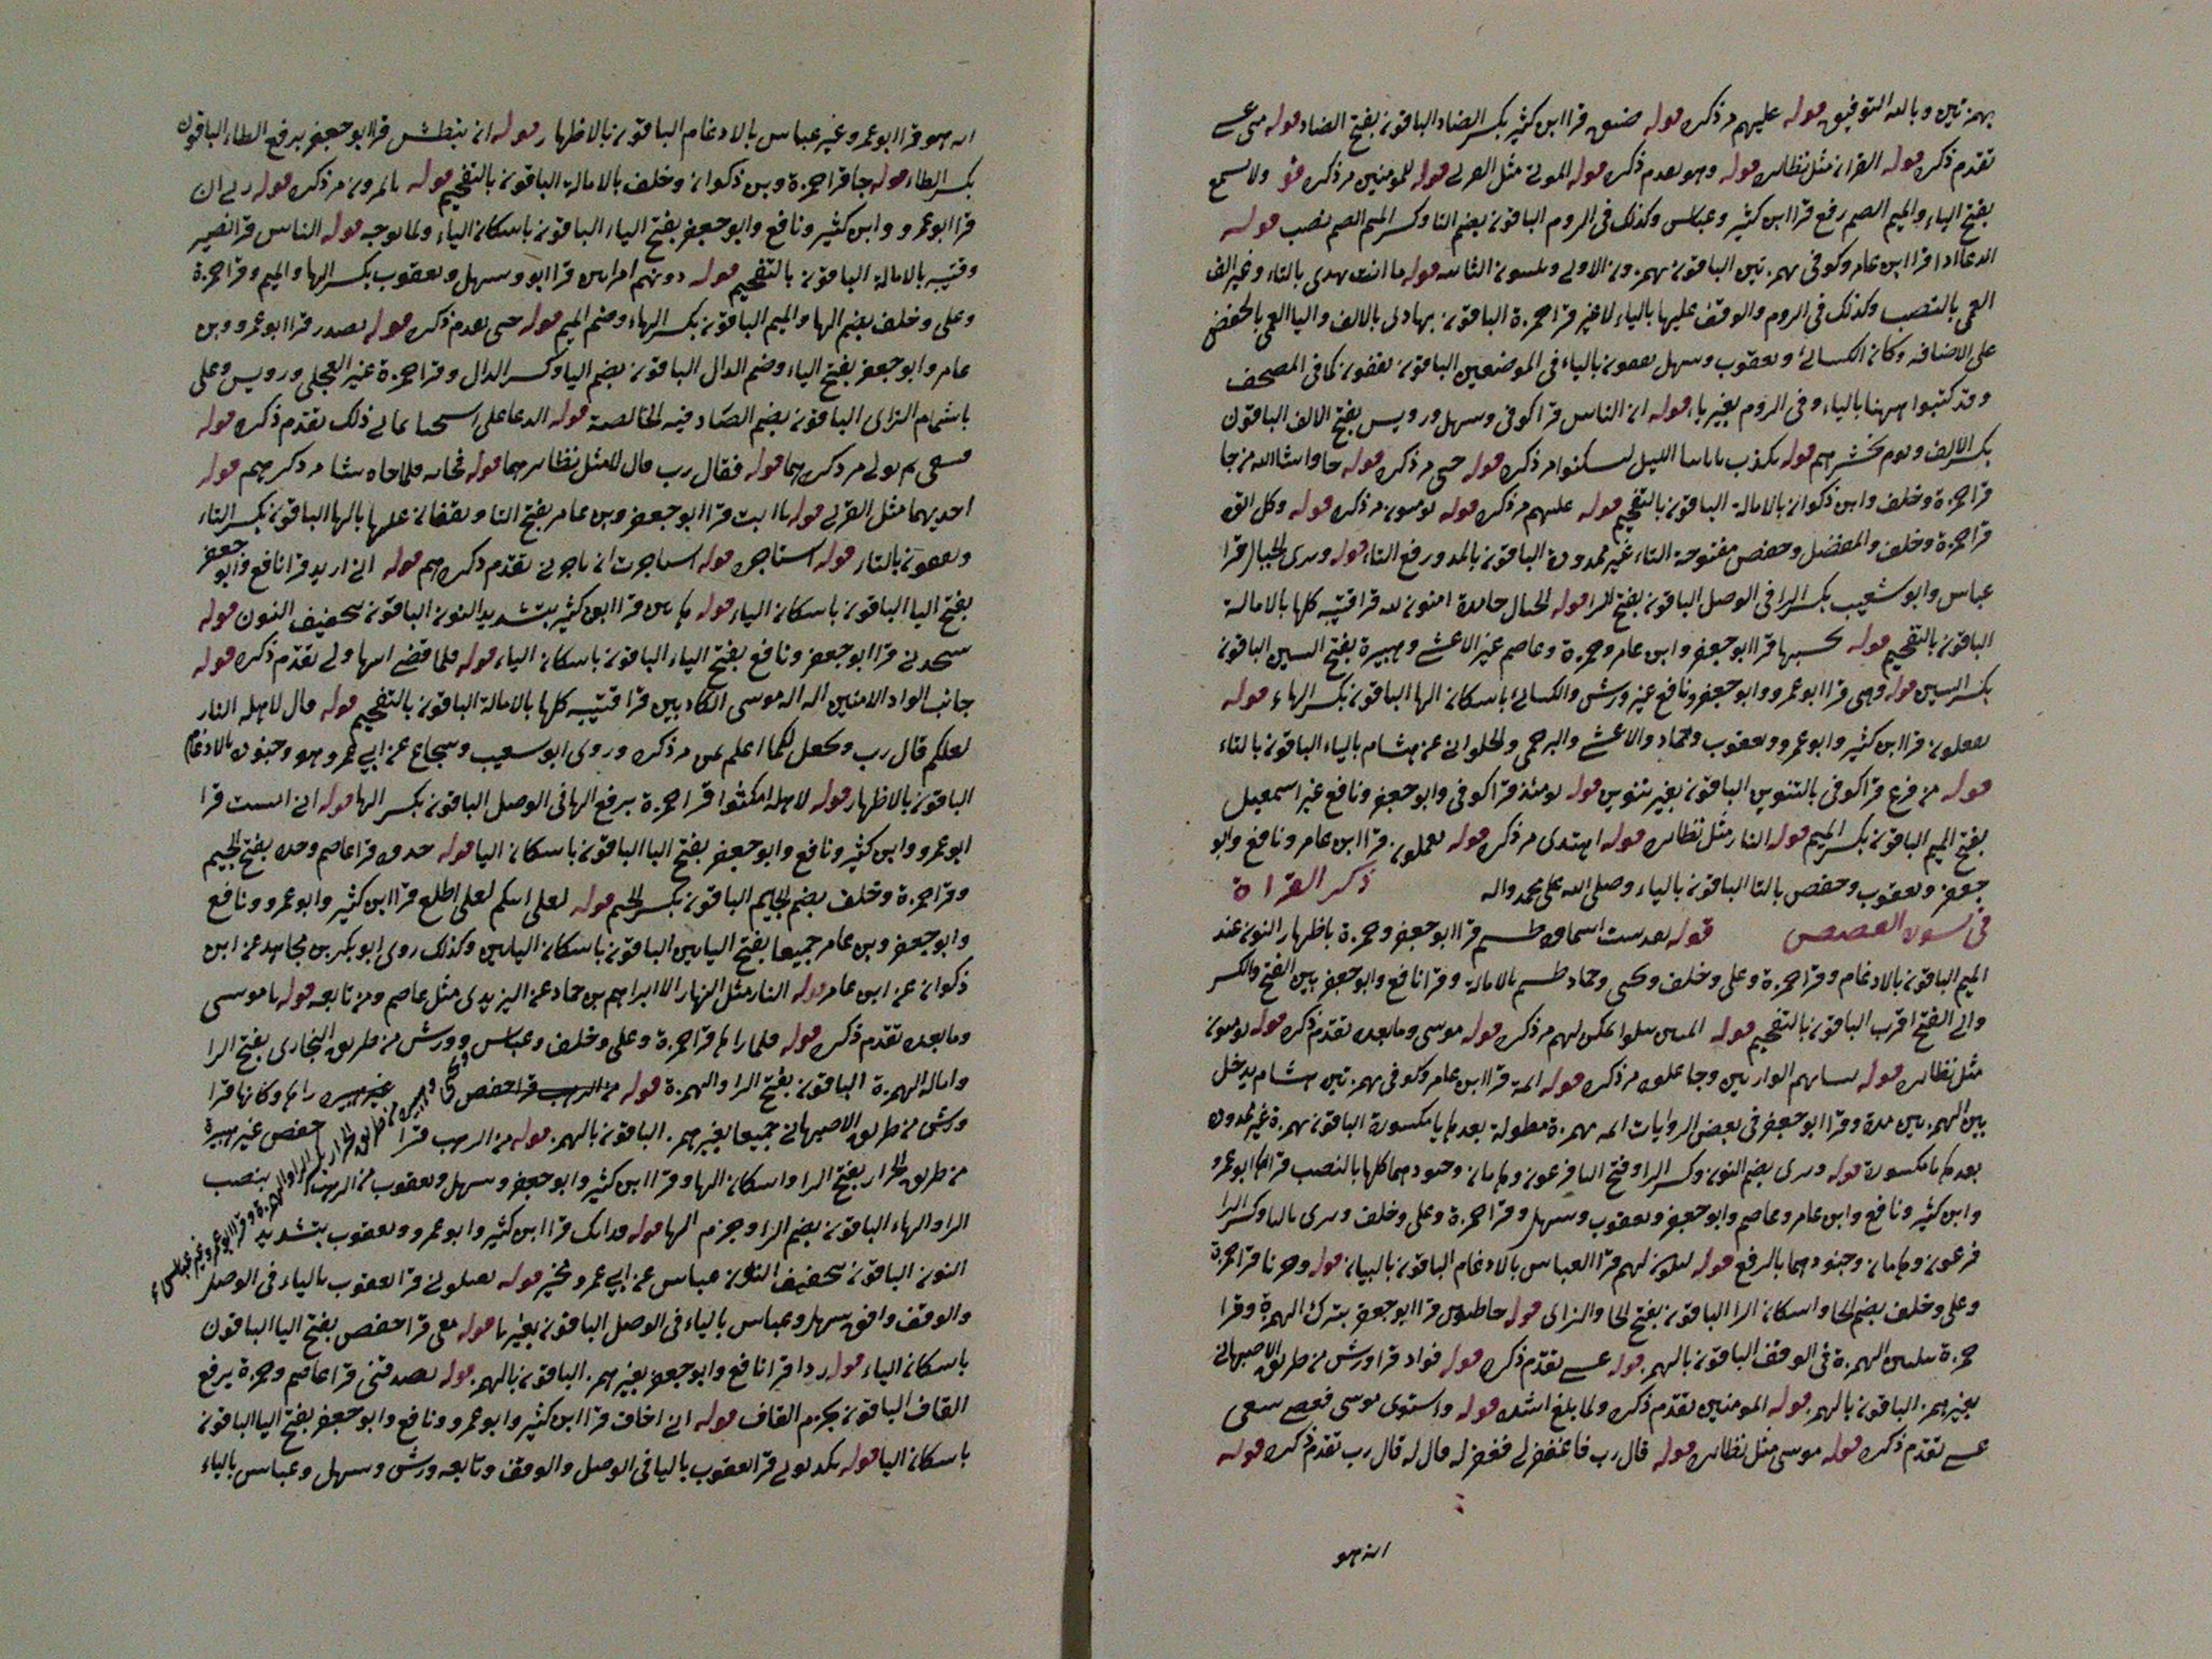 بهمزتين وبالله التوفيق قوله عليهم مر ذكره قوله ضيق قرا ابن كثير بكسر الضاد الباقون بفتح الضاد قوله متى عسى
تقدم ذكره قوله القران مثل نظائره قوله وهو تقدم ذكره قوله الموتى مثل القرى قوله للمومنين مر ذكره قو ولا تسمع
بفتح الياء والميم الصم رفع قرا ابن كثير وعباس وكذلك فى الروم الباقون بضم التا وكسر الميم الصم نصب قوله
الدعا اذا قرا ابن عامر وكوفى بهمزتين الباقون بهمزون الاولى ويلينون الثانيه قوله ما انت تهدى بالتاء وغير الف
العمى بالنصب وكذلك فى الروم والوقف عليها بالياء لا غير قرا حمزة الباقون بهادى بالالف واليا العمى بالخفض
على الاضافه وكان الكسائى ويعقوب وسهل يقفون بالياء فى الموضعين الباقون يقفون كما فى المصحف
وقد كتبوا ههنا بالياء وفى الروم بغير ياء قوله ان الناس قرا كوفى وسهل ورويس بفتح الالف الباقون
بكسر الالف ويوم نحشرهم قوله يكذب باياتنا الليل ليسكنوا مر ذكره قوله حتى مر ذكره قوله جاوا شاالله من جا
قرا حمزة وخلف وابن ذكوان بالامالة الباقون بالتفخيم قوله عليهم مر ذكره قوله يومنون مر ذكره قوله وكل اتوه
قرا حمزة وخلف والمفضل وحفص مفتوحة التاء غير ممدودة الباقون بالمد ورفع التاء قوله وترى الجبال قرا
عباس وابو شعيب بكسر الرا فى الوصل الباقون بفتح الرا قوله الجبال جامدة امنون لله قرا قتيبه كلها بالامالة
الباقون بالتفخيم قوله تحسبها قرا ابو جعفر وابن عامر وحمزة وعاصم غير الاعشى وهبيرة بفتح السين الباقون
بكسر السين قوله وهى قرا ابو عمرو وابو جعفر ونافع غير ورش والكسائى باسكان الها الباقون بكسر الهاء قوله
يفعلون قرا ابن كثير وابو عمرو ويعقوب وحماد والاعشى والبرجمى والحلوانى عن هشام بالياء الباقون بالتاء
قوله من فزع قرا كوفى بالتنوين الباقون بغير تنوين قوله يومئذ قرا كوفى وابو جعفر ونافع غير اسمعيل
بفتح الميم الباقون بكسر الميم قوله النار مثل نظائره قوله اهتدى مر ذكره قوله تعملون قرا ابن عامر ونافع وابو
جعفر ويعقوب وحفص بالتا الباقون بالياء وصلى الله على محمد واله ذكر القراة
فى سورة القصص قوله بعد ست اسماوه طسم قرا ابو جعفر وحمزة باظهار النون عند
الميم الباقون بالادغام وقرا حمزة وعلى وخلف ويحيى وحماد طسم بالامالة وقرا نافع وابو جعفر بين الفتح والكسر
والى الفتح اقرب الباقون بالتفخيم قوله المبين نتلوا نمكن لهم مر ذكره قوله موسى وما بعده تقدم ذكره قوله يومنون
مثل نظائره قوله نساهم الوارثين وجاعلوه مر ذكره قوله ائمة قرا ابن عامر وكوفى بهمزتين هشام يدخل
بين الهمزتين مدة وقرا ابو جعفر فى بعض الروايات ائمه بهمزة مطولة بعدها يا مكسورة الباقون بهمزة غير ممدودة
بعدها يا مكسورة قوله ونرى بضم النون وكسر الرا وفتح اليا فرعون وهامان وجنودهما كلها بالنصب قراها ابو عمرو
وابن كثير ونافع وابن عامر وعاصم وابو جعفر ويعقوب وسهل وقرا حمزة وعلى وخلف ويرى باليا وكسر الرا
فرعون وهامان وجنودهما بالرفع قوله ليكون لهم قرا العباس بالادغام الباقون بالبيان قوله وحزنا قرا حمزة
وعلى وخلف بضم الحا واسكان الزا الباقون بفتح الحا والزاى قوله خاطئين قرا ابو جعفر بترك الهمزة وقرا
حمزة بتليين الهمزة فى الوقف الباقون بالهمز قوله عسى تقدم ذكره قوله فواد قرا ورش من طريق الاصبهانى
بغير همز الباقون بالهمز قوله المومنين تقدم ذكره ولما بلغ اشده قوله واستوى موسى فقضى سعى
عسى تقدم ذكره قوله موسى مثل نظائره قوله قال رب فاغفر لى فغفر له قال له قال رب تقدم ذكره قوله
انه هو
انه هو قرا ابو عمرو غير عباس بالادغام الباقون بالاظهار قوله ان يبطش قرا ابو جعفر برفع الطاء الباقون
بكسر الطاء قوله جا قرا حمزة وبن ذكوان وخلف بالامالة الباقون بالتفخيم قوله ياتمرون مر ذكره قوله ربى ان
قرا ابو عمرو وابن كثير ونافع وابو جعفر بفتح الياء الباقون باسكان الياء ولما توجه قوله الناس قرا نصير
وقتيبه بالامالة الباقون بالتفخيم قوله دونهم امراتين قرا ابو وسهل ويعقوب بكسر الها والميم وقرا حمزة
وعلى وخلف بضم الها والميم الباقون بكسر الهاء وضم الميم قوله حتى تقدم ذكره قوله يصدر قرا ابو عمرو وبن
عامر وابو جعفر بفتح الياء وضم الدال الباقون بضم اليا وكسر الدال وقرا حمزة غير العجلى ورويس وعلى
باشمام الزاى الباقون بضم الصاد فيه الخالصة قوله الدعا على استحيا تمالى ذلك تقدم ذكره قوله
فسقى ثم تولى مر ذكرهما قوله فقال رب قال لا مثل نظائرهما قوله فجاته فلما جاه شا مر ذكرهم قوله
احديهما مثل القرى قوله يا ابت قرا ابو جعفر وبن عامر بفتح التا ويقفان عليها بالها الباقون بكسر التاء
ويقفون بالتاء قوله استاجره قوله استاجرت ان تاجرنى تقدم ذكرهم قوله انى اريد قرا نافع وابو جعفر
بفتح اليا الباقون باسكان الياء قوله هاتين قرا ابن كثير بتشديد النون الباقون بتخفيف النون قوله
ستجدنى قرا ابو جعفر ونافع بفتح الياء الباقون باسكان الياء قوله فلما قضى اتيها ولى تقدم ذكره قوله
جانب الواد الامنين اله اله موسى الكاذبين قرا قتيبه كلها بالامالة الباقون بالتفخيم قوله قال لاهله النار
لعلكم قال رب ونجعل لكما اعلم بمن مر ذكره وروى ابو شعيب وشجاع عن ابى عمرو هو وجنوده بالادغام
الباقون بالاظهار قوله لاهله امكثوا قرا حمزة برفع الها فى الوصل الباقون بكسر الها قوله انى انست قرا
ابو عمرو وابن كثير ونافع وابو جعفر بفتح اليا الباقون باسكان اليا قوله جذوة قرا عاصم وحده بفتح الجيم
وقرا حمزة وخلف بضم الجيم الباقون بكسر الجيم قوله لعلى اتيكم لعلى اطلع قرا ابن كثير وابو عمرو ونافع
وابو جعفر وبن عامر جميعا بفتح اليائين الباقون باسكان اليائين وكذلك روى ابو بكر بن مجاهد عن ابن
ذكوان عن ابن عامر قوله النار مثل النهار الا ابراهيم بن حماد عن اليزيدى مثل عاصم ومن تابعه قوله يا موسى
وما بعده تقدم ذكره قوله فلما راها قرا حمزة وعلى وخلف وعباس وورش من طريق البخارى بفتح الرا
وامالة الهمزة الباقون بفتح الرا والهمزة قوله من الرهب قرا حفص غير هبيره راها وكانها قرا
ورش من طريق الاصبهانى جميعا بغير همز الباقون بالهمز قوله من الرهب قرا حفص غير هبيرة
من طريق الخزاز بفتح الرا واسكان الها وقرا ابن كثير وابو جعفر وسهل ويعقوب من الرهب بنصب
الرا والهاء الباقون بضم الرا وجزم الها قوله فذانك قرا ابن كثير وابو عمرو ويعقوب بتشديد
النون الباقون بتخفيف النون عباس عن ابى عمرو مخير قوله يقتلونى قرا يعقوب بالياء فى الوصل
والوقف وافق سهل وعباس بالياء فى الوصل الباقون بغير يا قوله معى قرا حفص بفتح اليا الباقون
باسكان الياء قوله ردا قرا نافع وابو جعفر بغير همز الباقون بالهمز قوله يصدقنى قرا عاصم وحمزة برفع
القاف الباقون بجزم القاف قوله انى اخاف قرا ابن كثير وابو عمرو ونافع وابو جعفر بفتح اليا الباقون
باسكان اليا قوله يكذبونى قرا يعقوب باليا فى الوصل والوقف وتابعه ورش وسهل وعباس بالياء